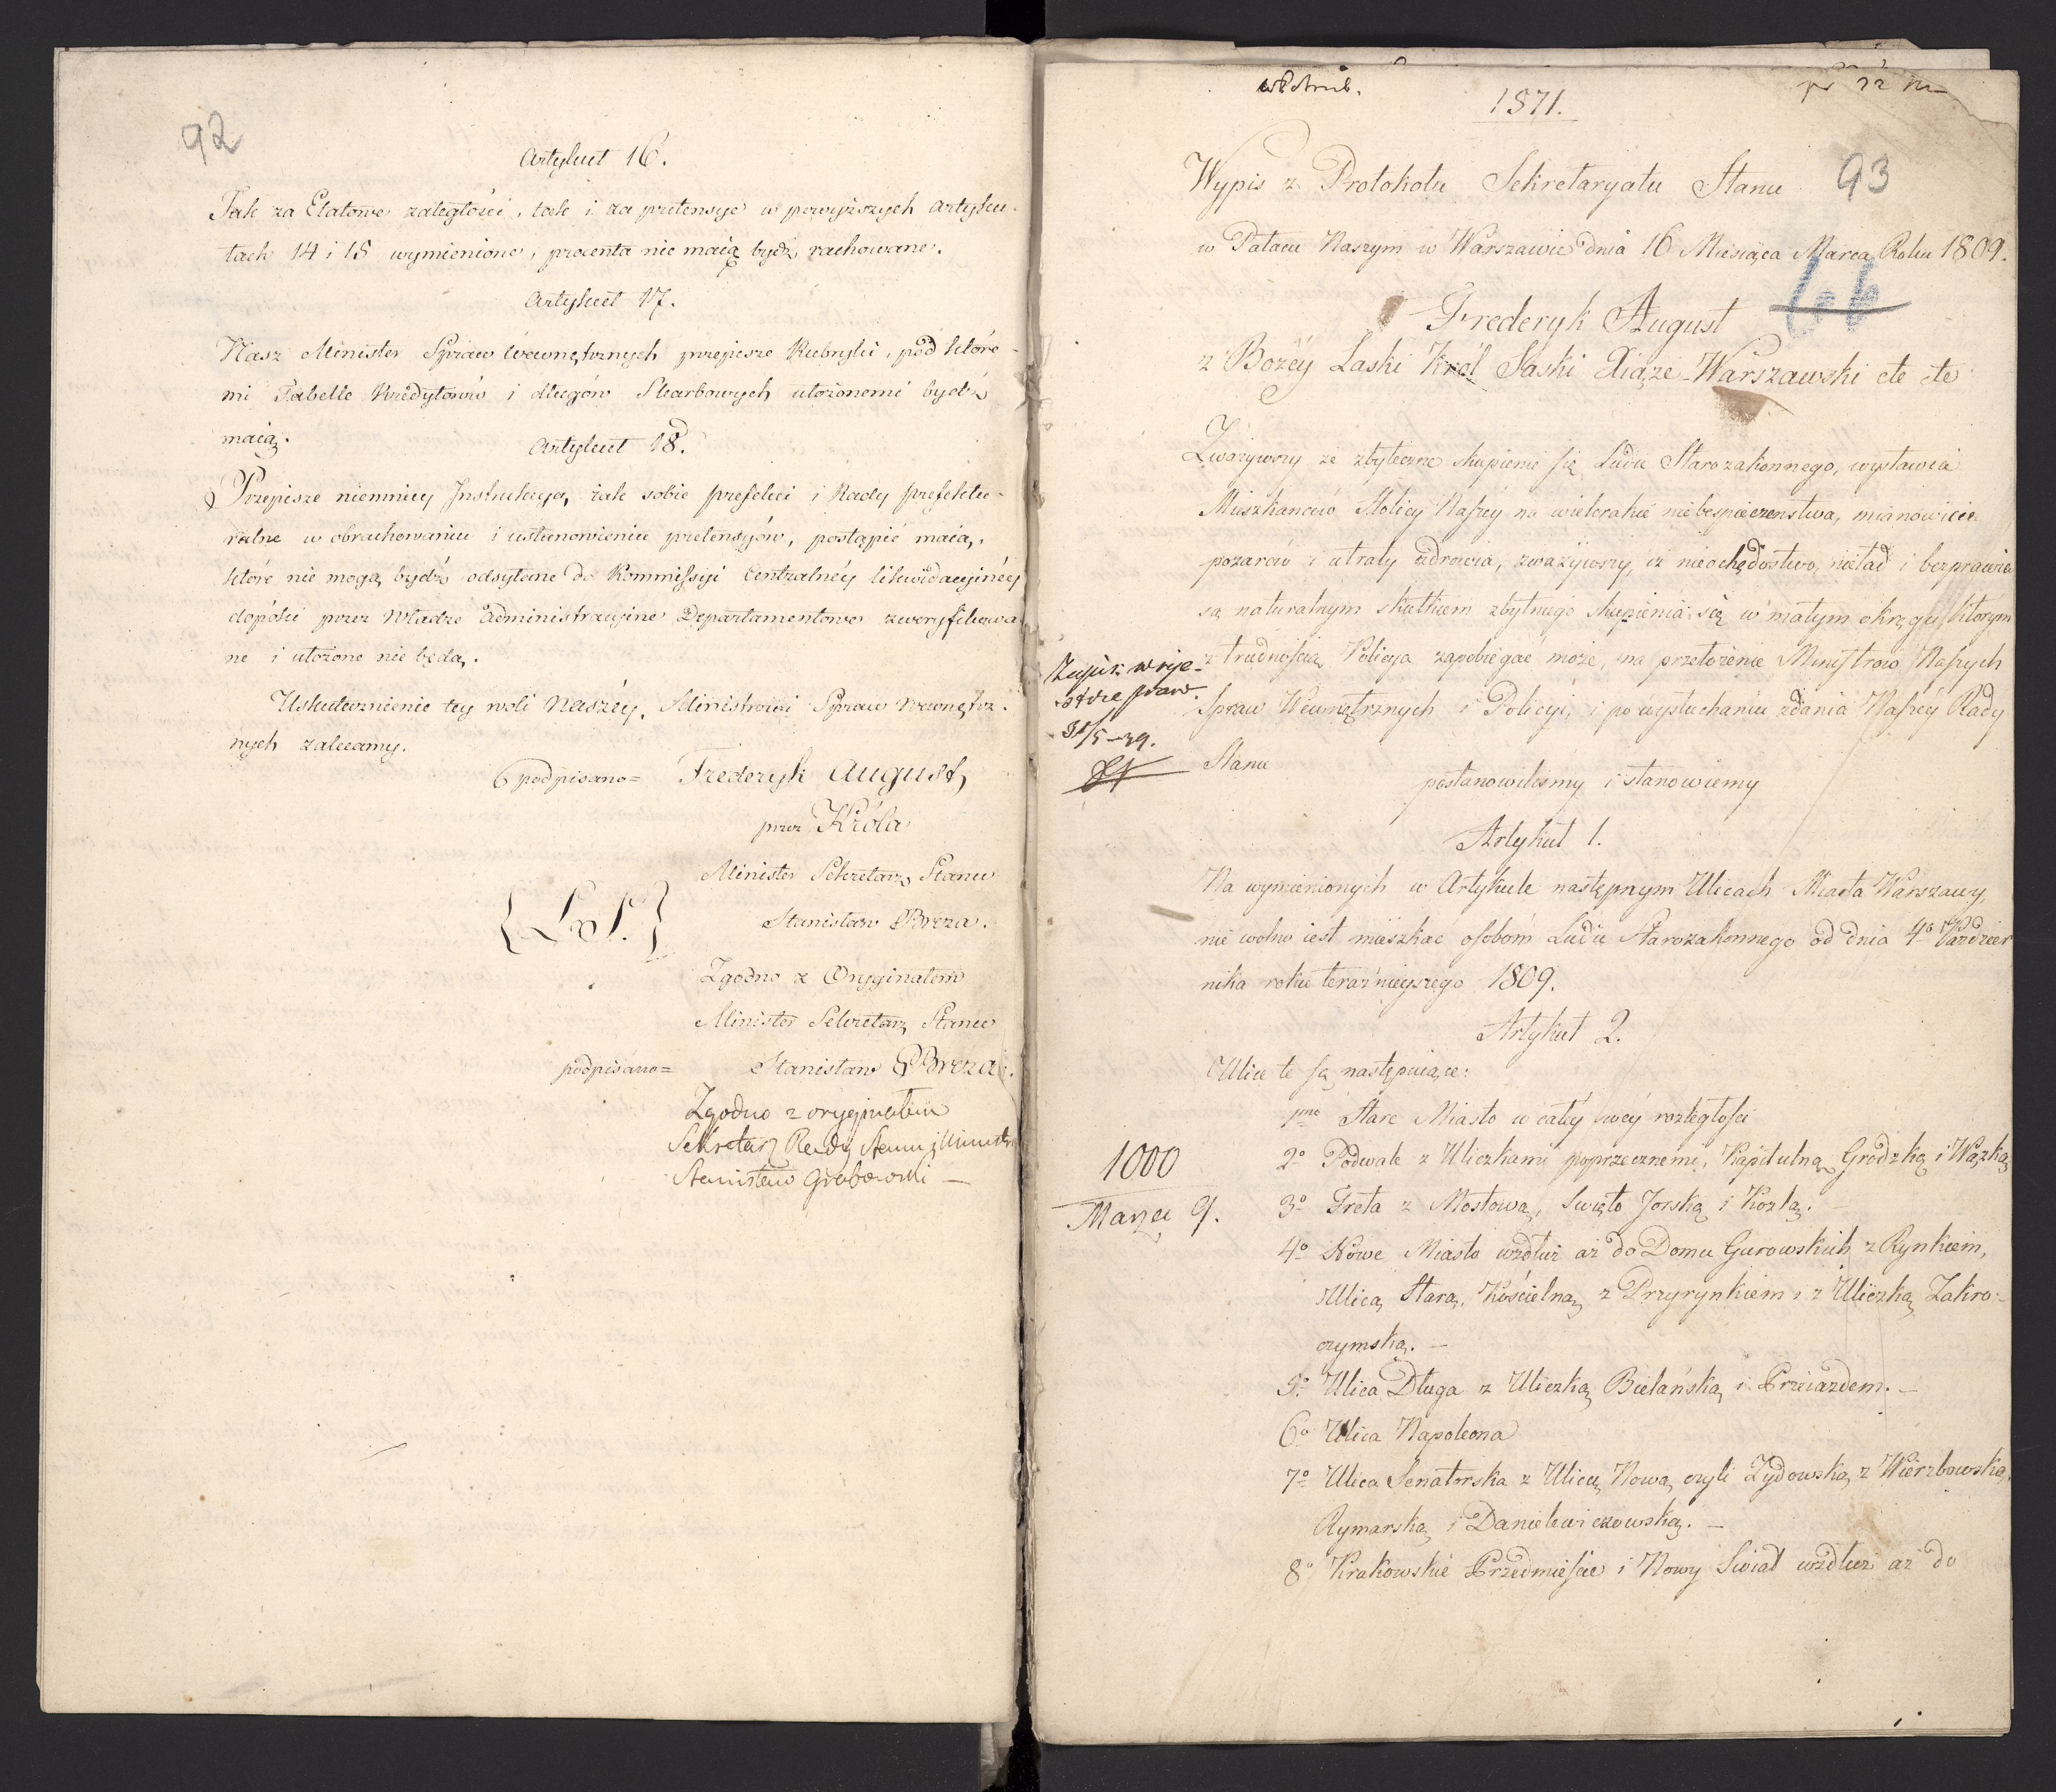 92
Artykuł 16.
Jak za Etatowe zaległości, tak i za pretensye w powyższych artyku-
łach 14 i 15 wymienione, procenta nie maią bydź rachowane.
Artykuł 17.
Nasz Minister Spraw Wewnętrznych przepisze Rubryki, pod które-
mi Tabelle Kredytorów i długów Skarbowych ułożonemi bydź
maią.
Artykuł 18.
Przepisze niemniey Instrukcyą, iak sobie prefekci i Rady prefektu-
ralne w obrachowaniu i ustanowieniu pretensyów, postąpić maią,
które nie mogą bydź odsyłane do Kommissyi Centralnéy likwidacyinéy
dopóki przez Władze administracyine Departamentowe zweryfikowa
ne i ułożone nie będą.
Uskutecznienie tey woli Naszéy, Ministrowi Spraw Wewnętrz-
nych zalecamy.
podpisano= Frederyk August,
przez Króla
Minister Sekretarz Stanu
{L. S.} Stanisław Breza.
Zgodno z Oryginałem
Minister Sekretarz Stanu
podpisano= Stanisław Breza.
Zgodno z oryginałem
Sekretarz Rady Stanu i Ministr
Stanisław Grabowski —
1571.
93
Wypis z Protokołu Sekretaryatu Stanu
w Pałacu Naszym w Warszawie dnia 16 Miesiąca Marca Roku 1809.
Frederyk August
z Bożéy Łaski Król Saski Xiąże Warszawski etc etc
Zważywszy że zbyteczne skupienie się Ludu Starozakonnego, wystawia
Mieszkańców Stolicy Naszéy na wielorakie niebespieczeństwa, mianowicie
pożarów i utraty zdrowia, zważywszy, iż nieochędostwo, nieład i bezprawie
są naturalnym skutkiem zbytniego skupienia się w małym okręgu, którym
z trudnością Policya zapobiegać może, na przełożenie Ministrów Naszych
Spraw Wewnętrznych i Policyi, i po wysłuchaniu zdania Naszéy Rady
Stanu
31/5-39.
postanowiliśmy i stanowiemy
Artykuł 1.
Na wymienionych w Artykule następnym Ulicach Miasta Warszawy,
nie wolno iest mieszkać osobom Ludu Starozakonnego od dnia 4º Paździer
nika roku teraźnieyszego 1809.
Artykuł 2.
Ulice te są następuiące:
1mo Stare Miasto w całéy swéy rozległości
1000
Marzec 9.
2º Podwale z Uliczkami poprzecznemi, Kapitulną Grodzką i Wązką
3º Freta z Mostową, Swięto Jorską i Kozłą. —
4º Nowe Miasto wzdłuż aż do Domu Gurowskich z Rynkiem,
Ulicą Starą, Kościelną z Przyrynkiem i z Uliczką Zakro-
czymską. —
5º Ulica Długa z Uliczką Bielańską i Przeiazdem. —
6º Ulica Napoleona
7º Ulica Senatorska z Ulicą Nową czyli Zydowską z Wierzbowską,
Rymarską i Danielewiczowską. —
8º Krakowskie Przedmieście i Nowy Swiat wzdłuż aż do